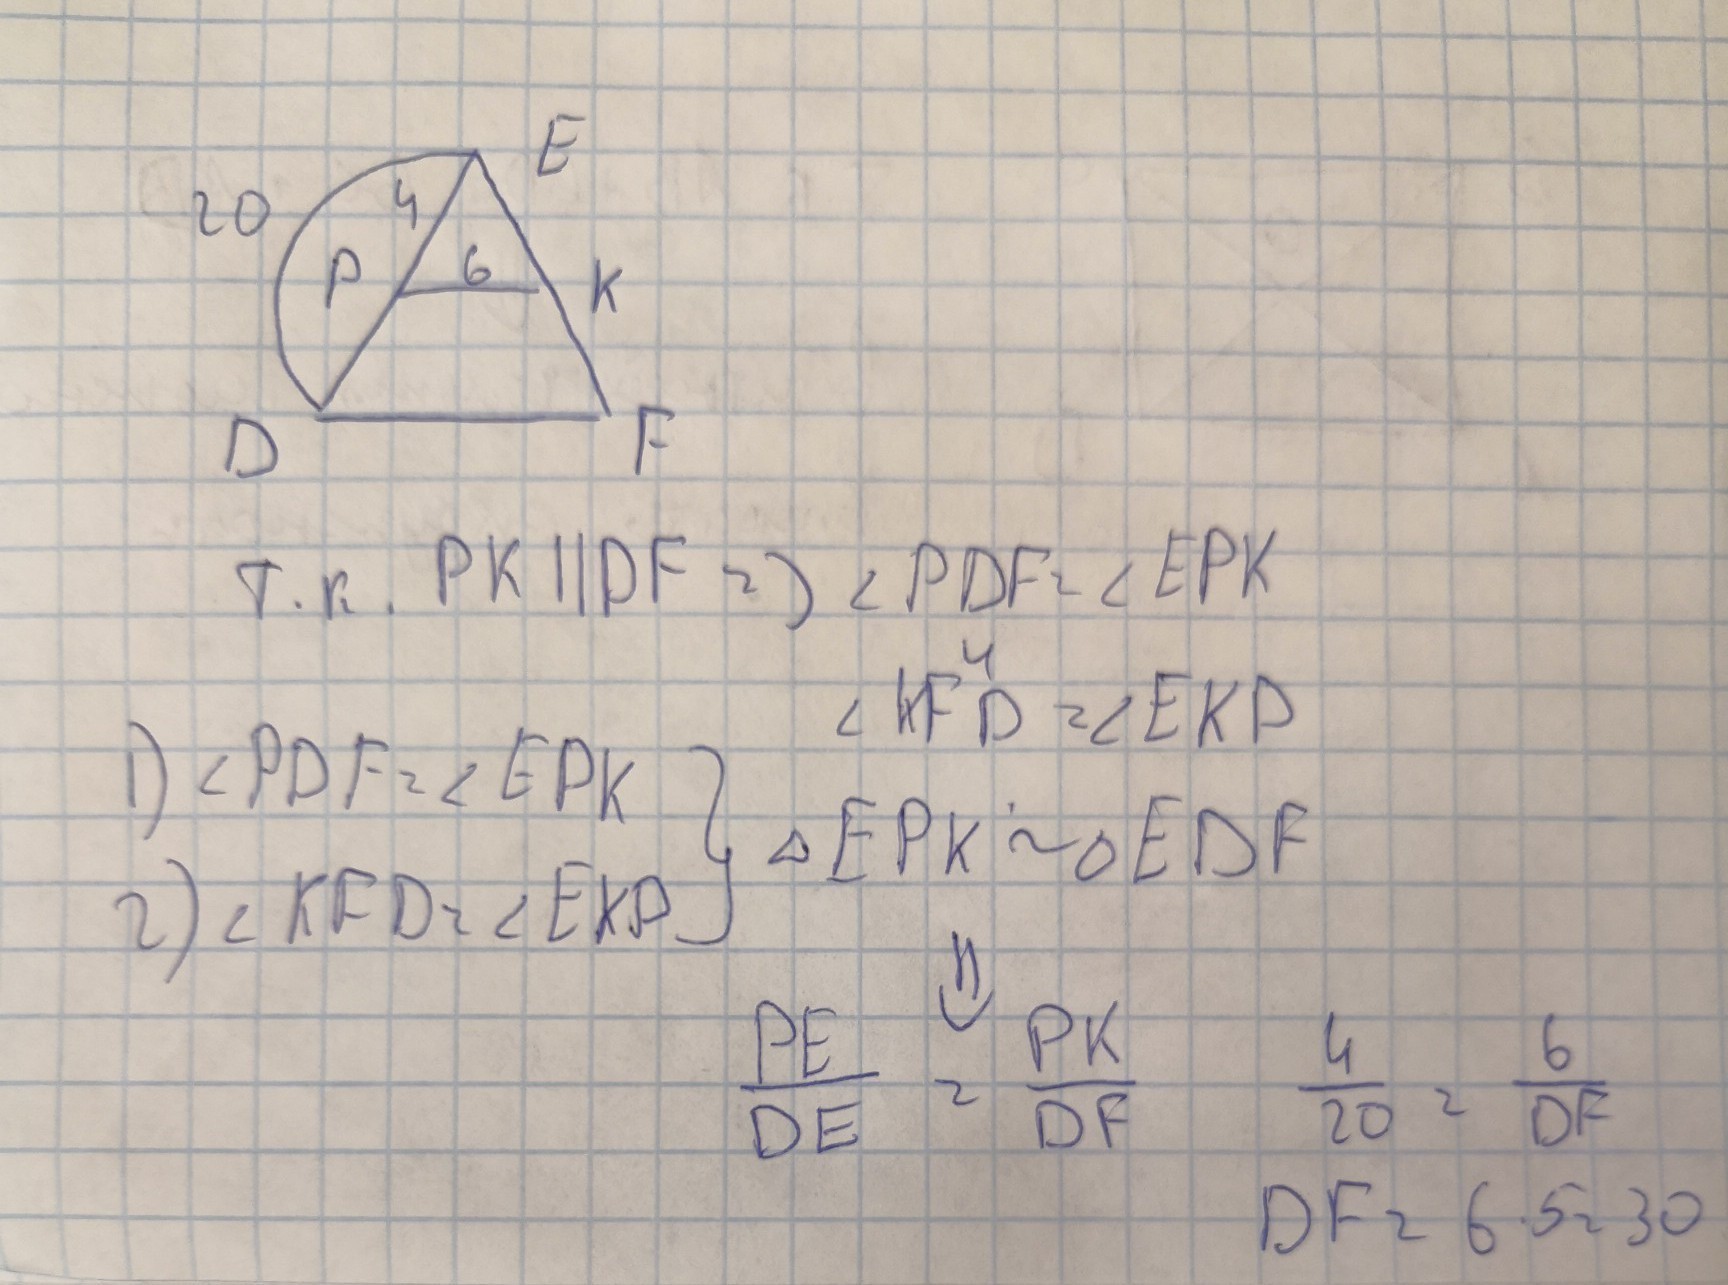 E
20
4
P
6
K
D
F
т.к. PK || DF => <PDF = <EPK
и
<KFD = <EKP
1) <PDF = <EPK
2) <KFD = <EKP
} △EPK ~ △EDF
⇓
PE/DE = PK/DF
4/20 = 6/DF
DF = 6·5 = 30